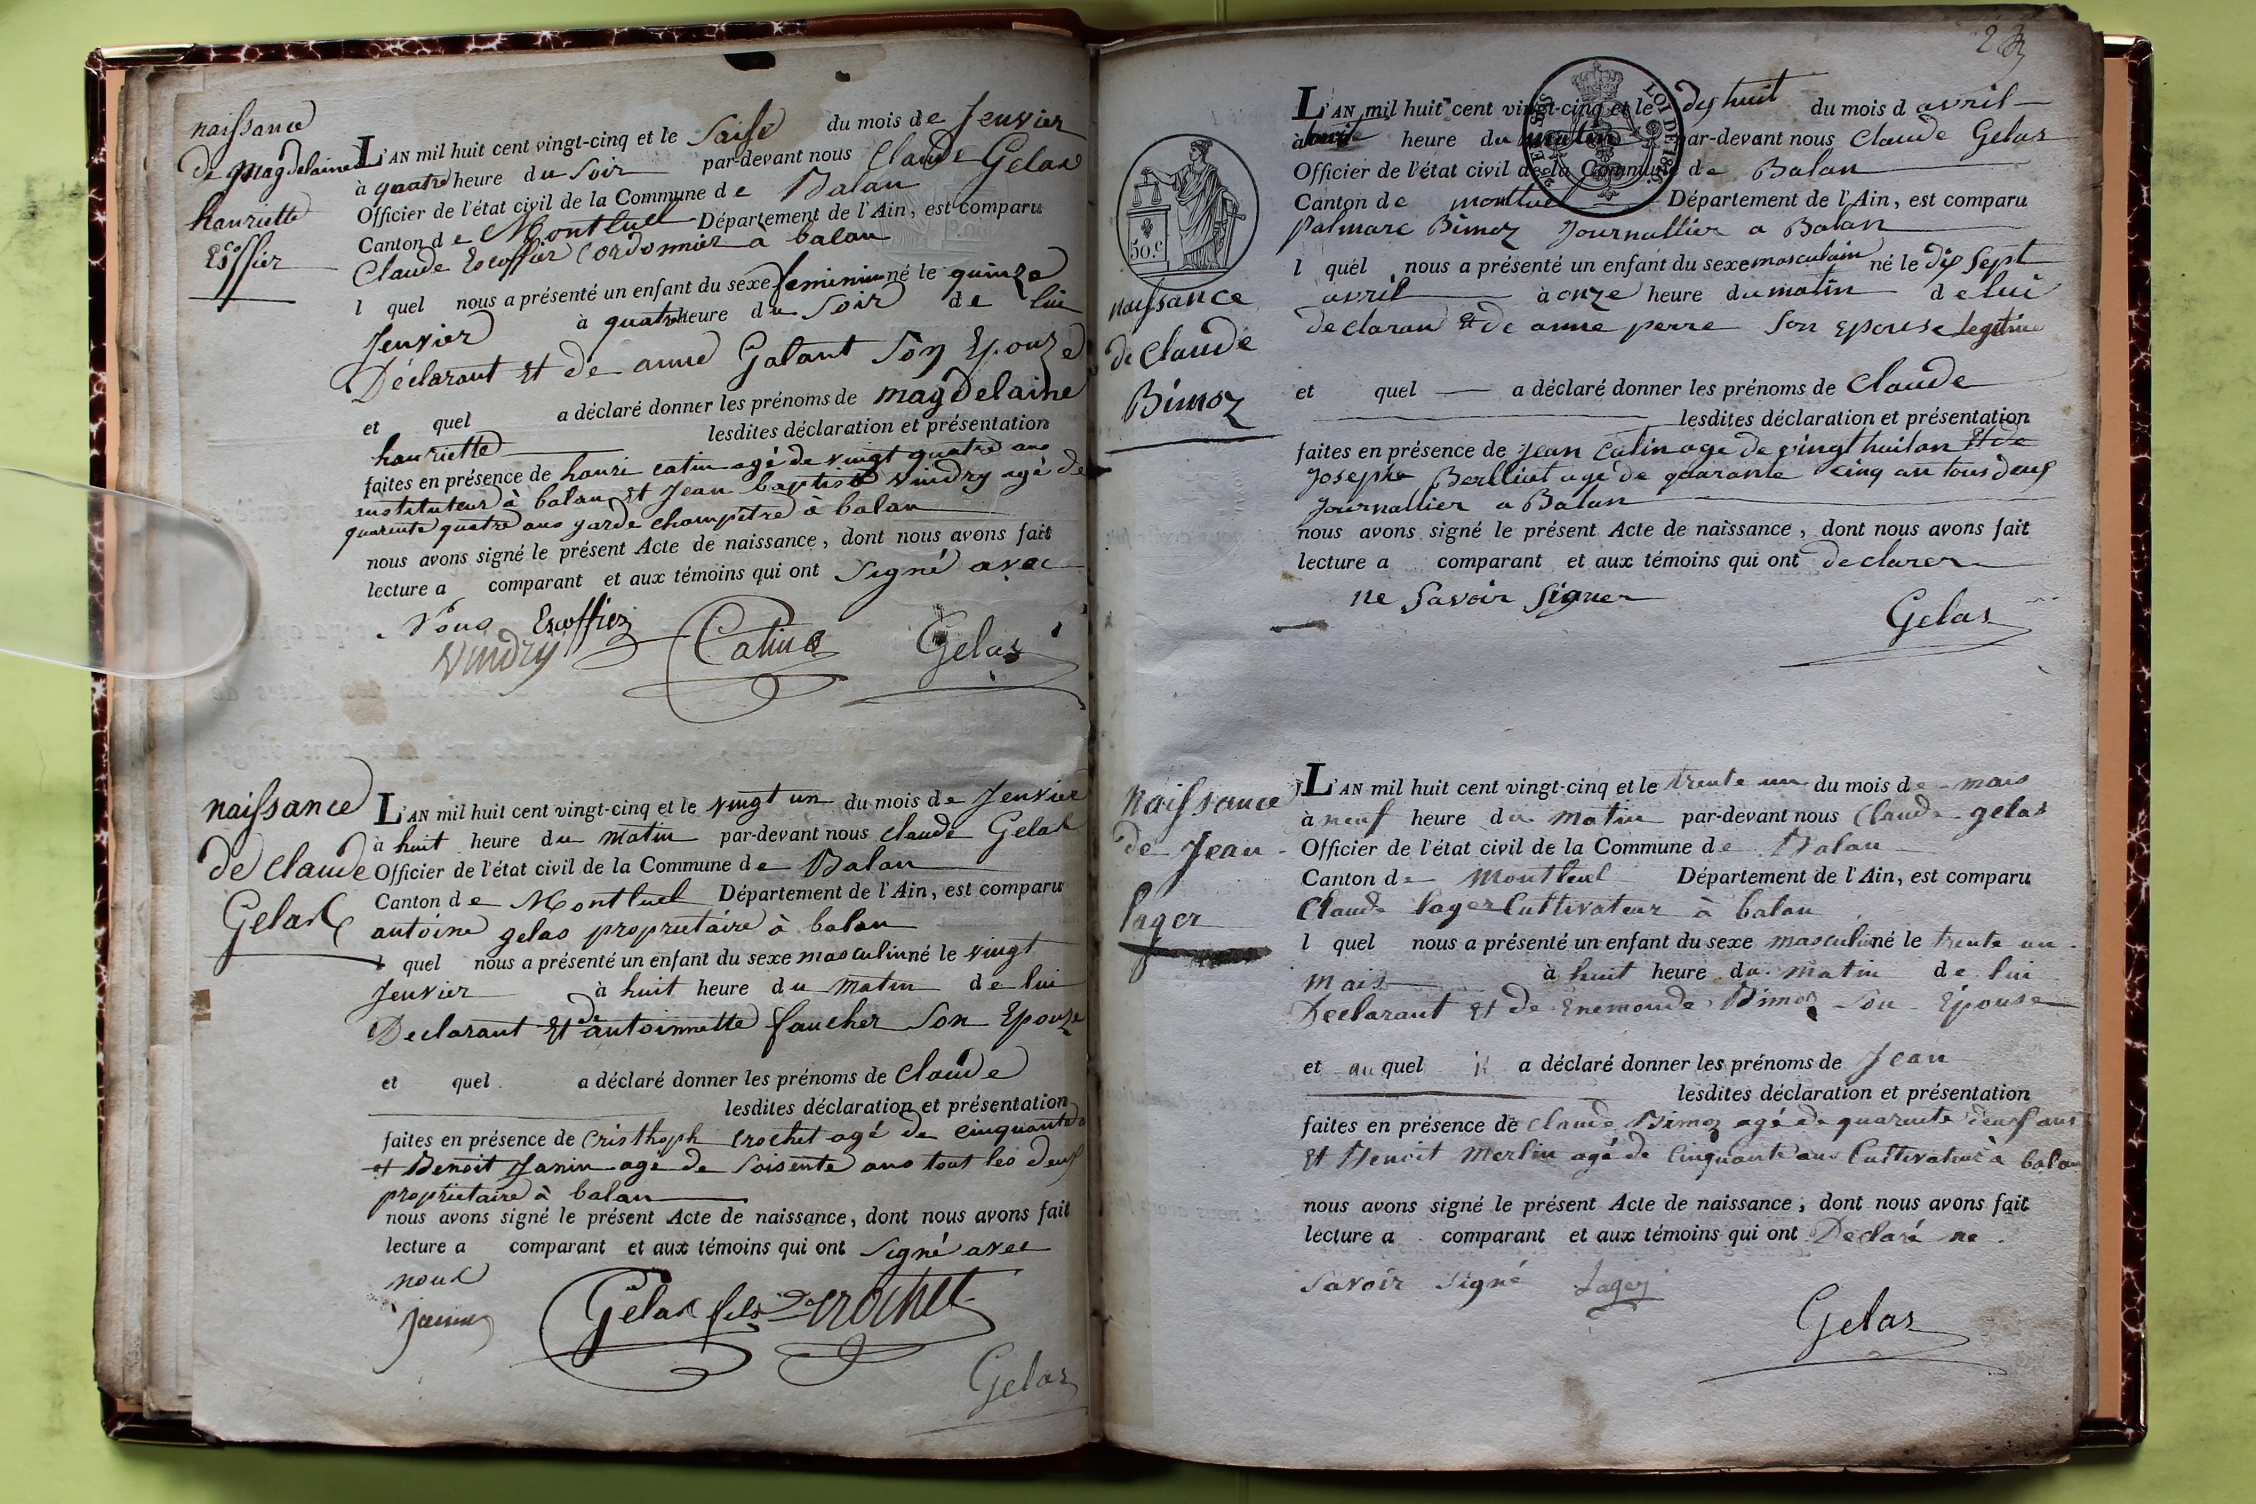 naissance
de magdelaine
hanriette
Escoffier
L'AN mil huit cent vingt-cinq et le Saise du mois de Jenvier
à quatre heure du Soir par-devant nous Claude Gelas
Officier de l'état civil de la Commune de Balan
Canton de Montluel Département de l'Ain, est comparu
Claude Escoffier Cordonnier à balan
l quel nous a présenté un enfant du sexe feminin né le quinze
Jenvier à quatre heure du Soir de lui
Déclarant Et de anne Galant Son Epouze
et quel a déclaré donner les prénoms de magdelaine
hanriette lesdites déclaration et présentation
faites en présence de hanri catin agé de vingt quatre ans
instituteur à balan Et Jean baptiste Vindry agé de
quarente quatre ans garde champetre à balan
nous avons signé le présent Acte de naissance, dont nous avons fait
lecture a comparant et aux témoins qui ont Signé avec
Nous Escoffier
Vindry Catin Gelas
naissance
de Claude
Gelas
L'AN mil huit cent vingt-cinq et le vingt un du mois de Jenvier
à huit heure du matin par-devant nous Claude Gelas
Officier de l'état civil de la Commune de Balan
Canton de Montluel Département de l'Ain, est comparu
antoine gelas proprietaire à balan
l quel nous a présenté un enfant du sexe masculin né le vingt
Jenvier à huit heure du matin de lui
Declarant Et de antoinnette faucher Son Epouze
et quel a déclaré donner les prénoms de Claude
lesdites déclaration et présentation
faites en présence de Cristhoph Crochet agé de cinquante
et Benoit Janin agé de Soisente ans tout les deux
proprietaire à balan
nous avons signé le présent Acte de naissance, dont nous avons fait
lecture a comparant et aux témoins qui ont Signé avec
nous
Janin Gelas fils Crochet
Gelas
LOI DE 1816
50.c
naissance
de Claude
Bimoz
L'AN mil huit cent vingt-cinq et le dix huit du mois d avril
à heure du matin par-devant nous Claude Gelas
Officier de l'état civil de la Commune de Balan
Canton de montluel Département de l'Ain, est comparu
palmare Bimoz Journallier a Balan
l quel nous a présenté un enfant du sexe masculain né le dix Sept
avril à onze heure du matin de lui
declaran Et de anne perre Son Epouse legitime
et quel a déclaré donner les prénoms de Claude
lesdites déclaration et présentation
faites en présence de jean Catin age de vingt huit an Et de
Josephe Berlliat agé de quarante cinq an tous deux
Journallier a Balan
nous avons signé le présent Acte de naissance, dont nous avons fait
lecture a comparant et aux témoins qui ont declarer
ne Savoir Signer
Gelas
naissance
de Jean
lager
L'AN mil huit cent vingt-cinq et le trente un du mois de mais
à neuf heure du matin par-devant nous Claude gelas
Officier de l'état civil de la Commune de Balan
Canton de Montluel Département de l'Ain, est comparu
Claude lager Cultivateur à balan
l quel nous a présenté un enfant du sexe masculin né le trente un
mais à huit heure du matin de lui
Declarant Et de Enemonde Bimoz Son Épouse
et au quel il a déclaré donner les prénoms de Jean
lesdites déclaration et présentation
faites en présence de Claude Bimoz agé de quarente deux ans
Et Benoit Merlin agé de Cinquante ans Cultivateur à balan
nous avons signé le présent Acte de naissance, dont nous avons fait
lecture a comparant et aux témoins qui ont Declaré ne
Savoir Signé Lager
Gelas